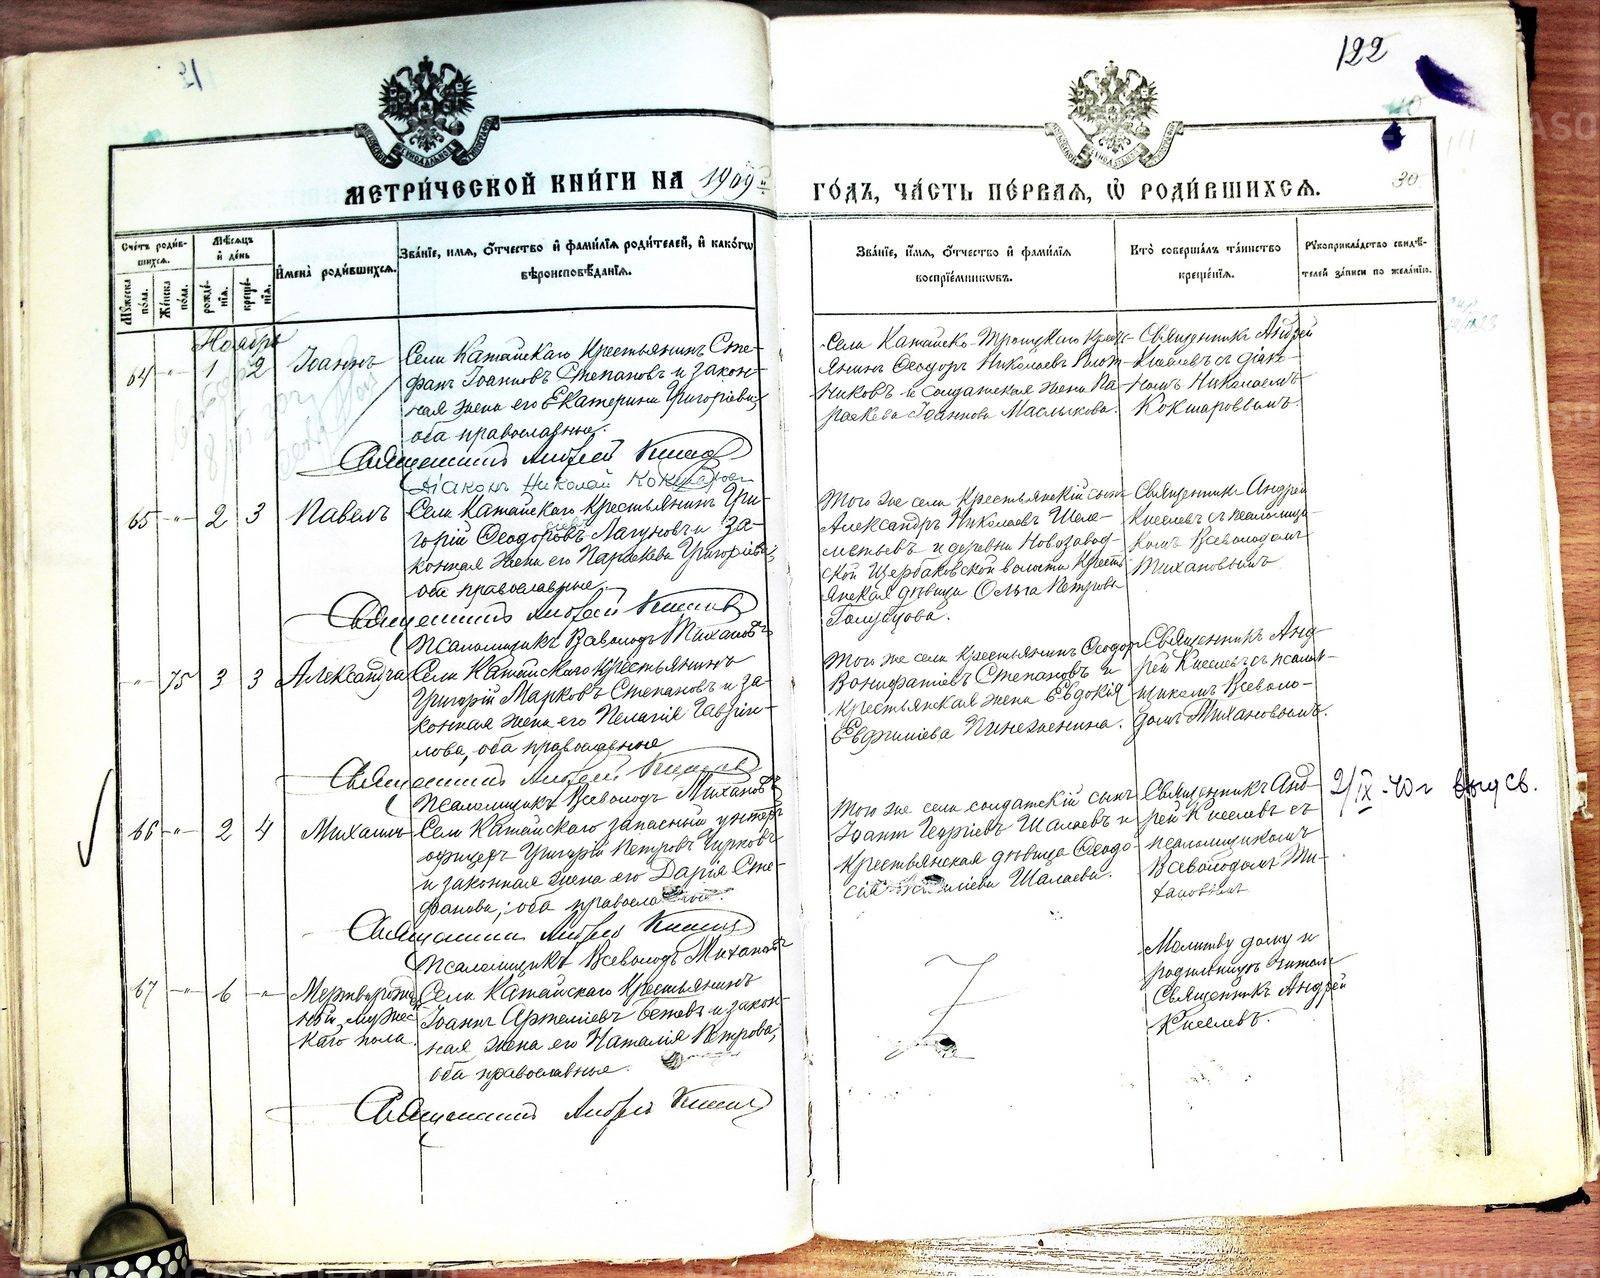 122
30
МЕТРИЧЕСКОЙ КНИГИ НА 1909 й
ГОДЪ, ЧАСТЬ ПЕРВАЯ, Ѽ РОДИВШИХСЯ.
Счетъ родившихся.
Мужеска пола.
Женска пола.
Мѣсяцъ и день
рожденія.
крещенія.
Имена родившихся.
Званіе, имя, отчество и фамилія родителей, и какогѡ
вѣроисповѣданія.
Званіе, имя, отчество и фамилія
воспріемниковъ.
Кто совершалъ таинство
крещенія.
Рукоприкладство свидѣ-
телей записи по желанію.
Ноябрь
64 -„- 1 2 Іоаннъ
Села Катайскаго Крестьянинъ Сте-
фанъ Іоанновъ Степановъ и закон-
ная жена его Екатерина Григоріева,
оба православные.
Священникъ Андрей Киселевъ
Діаконъ Николай Кокшаровъ
Села Катайско-Троицкаго Кресть-
янинъ Ѳеодоръ Николаевъ Плот-
никовъ и солдатская жена Па-
раскева Іоаннова Маслыкова.
Священникъ Андрей
Киселевъ съ діако-
номъ Николаемъ
Кокшаровымъ.
65 -„- 2 3 Павелъ
Села Катайскаго Крестьянинъ Гри-
горій Ѳеодоровъ Лагуновъ и за-
конная жена его Параскева Григоріева,
оба православные.
Священникъ Андрей Киселевъ
Псаломщикъ Всеволодъ Тихановъ
Того же села Крестьянскій сынъ
Александръ Николаевъ Шеле-
метьевъ и деревни Новозавод-
ской Щербаковской волости Кресть-
янская дѣвица Ольга Петрова
Голубцова.
Священникъ Андрей
Киселевъ съ псаломщи-
комъ Всеволодомъ
Тихановымъ
-„- 75 3 3 Александра
Села Катайскаго крестьянинъ
Григорій Марковъ Степановъ и за-
конная жена его Пелагія Гаврии-
лова, оба православные
Священникъ Андрей Киселевъ
Псаломщикъ Всеволодъ Тихановъ
Того же села крестьянинъ Ѳеодоръ
Вонифатіевъ Степановъ и
крестьянская жена Евдокія
Евфиміева Пинегенина.
Священникъ Анд-
рей Киселевъ съ псалом-
щикомъ Всеволо-
домъ Тихановымъ.
66 -„- 2 4 Михаилъ
Села Катайскаго запасный унтеръ
офицеръ Григорій Петровъ Чурковъ
и законная жена его Дарія Сте-
фанова; оба православные.
Священникъ Андрей Киселевъ
Псаломщикъ Всеволодъ Тихановъ
Того же села солдатскій сынъ
Іоаннъ Георгіевъ Шалаевъ и
Крестьянская дѣвица Ѳеодо-
сія Шалаева.
Священникъ Анд-
рей Киселевъ съ
псаломщикомъ
Всеволодомъ Ти-
хановымъ
2/IX-40 г выд св.
67 -„- 6 -„- Мертворожден-
ный мужес-
каго пола.
Села Катайскаго Крестьянинъ
Іоаннъ Артеміевъ и закон-
ная жена его Наталія Петрова,
оба православные.
Священникъ Андрей Киселевъ
Молитву дому и
родильницѣ читалъ
Священникъ Андрей
Киселевъ.